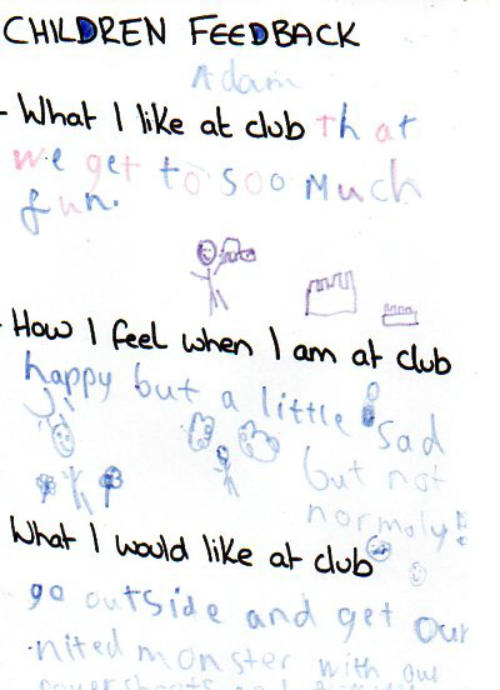 CHILDREN FEEDBACK
Adam
- What I like at club That
we get to soo Much
fun.
- How I feel when I am at club
happy but a little sad
but not
normaly!!
What I would like at club
go outside and get our
nited monster with our